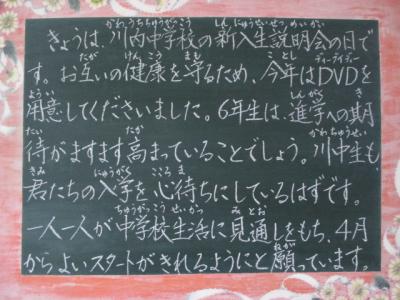 きょうは、川内中学校の新入生説明会の日で
す。お互いの健康を守るため、今年はDVDを
用意してくださいました。6年生は、進学への期
待がますます高まっていることでしょう。川中生も、
君たちの入学を心待ちにしているはずです。
一人一人が中学校生活に見通しをもち、4月
からよいスタートがきれるようにと願っています。